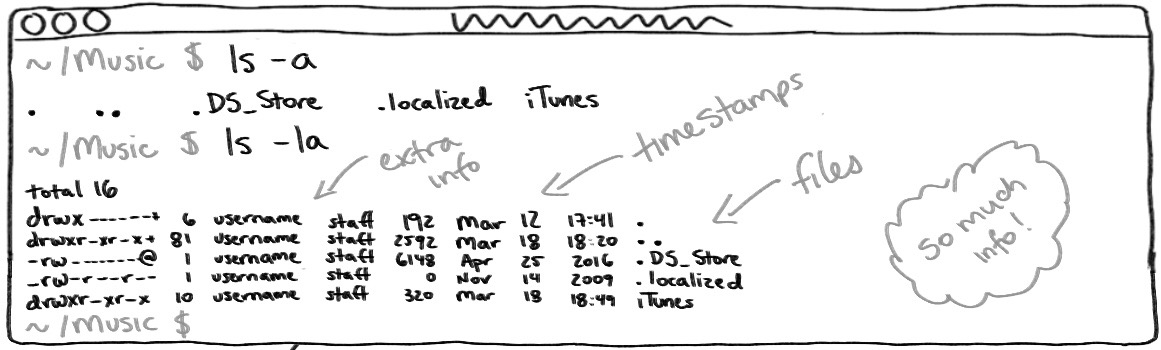 ~/Music $ ls -a
. .. .DS_Store .localized iTunes
~/Music $ ls -la
extra info
timestamps
files
so much info!
total 16
drwx------+ 6 username staff 192 Mar 12 17:41 .
drwxr-xr-x+ 81 username staff 2592 Mar 18 18:20 ..
-rw-------@ 1 username staff 6148 Apr 25 2016 .DS_Store
-rw-r--r-- 1 username staff 0 Nov 14 2009 .localized
drwxr-xr-x 10 username staff 320 Mar 18 18:49 iTunes
~/Music $